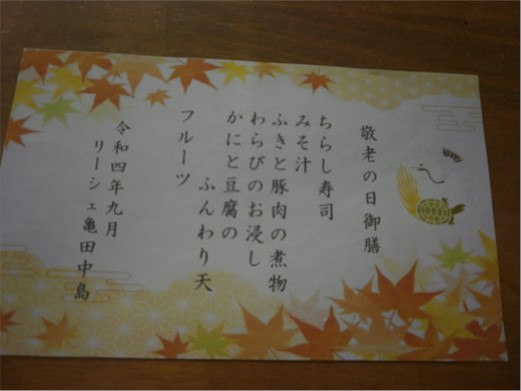 敬老の日御膳
ちらし寿司
みそ汁
ふきと豚肉の煮物
わらびのお浸し
かにと豆腐の
ふんわり天
フルーツ
令和四年九月
リーシェ亀田中島